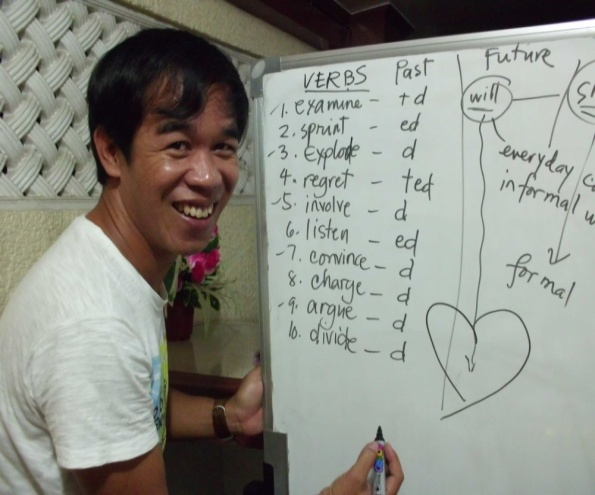 VERBS Past
1. examine – +d
2. sprint – ed
3. Explode – d
4. regret – ted
5. involve – d
6. listen – ed
7. convince – d
8. charge – d
9. argue – d
10. divide – d
Future
will
everyday
informal
formal